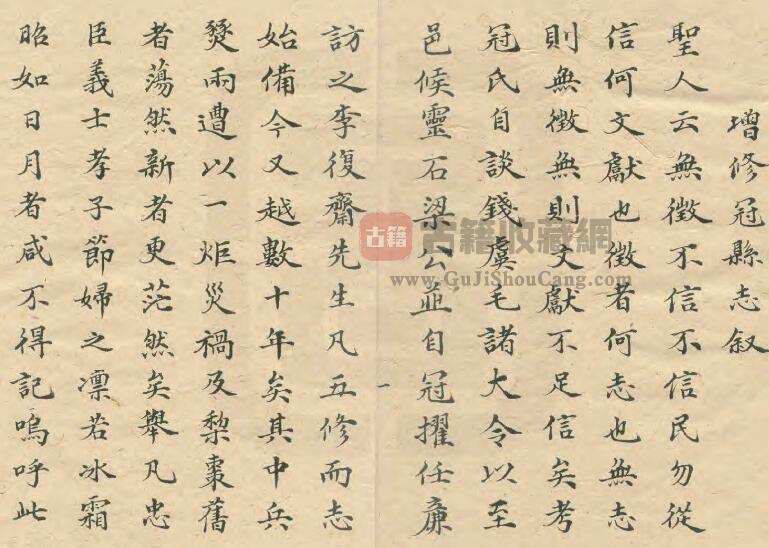 增修冠縣志叙
聖人云無徵不信不信民勿從
信何文獻也徵者何志也無志
則無徵無則文獻不足信矣考
冠氏自談錢虞毛諸大令以至
邑侯靈石梁公並自冠擢任廉
訪之李復齋先生凡五修而志
始備今又越數十年矣其中兵
燹兩遭以一炬災禍及棃棗舊
者蕩然新者更茫然矣舉凡忠
臣義士孝子節婦之凛若冰霜
昭如日月者咸不得記嗚呼此
一
古籍
古籍收藏網
www.GuJiShouCang.com